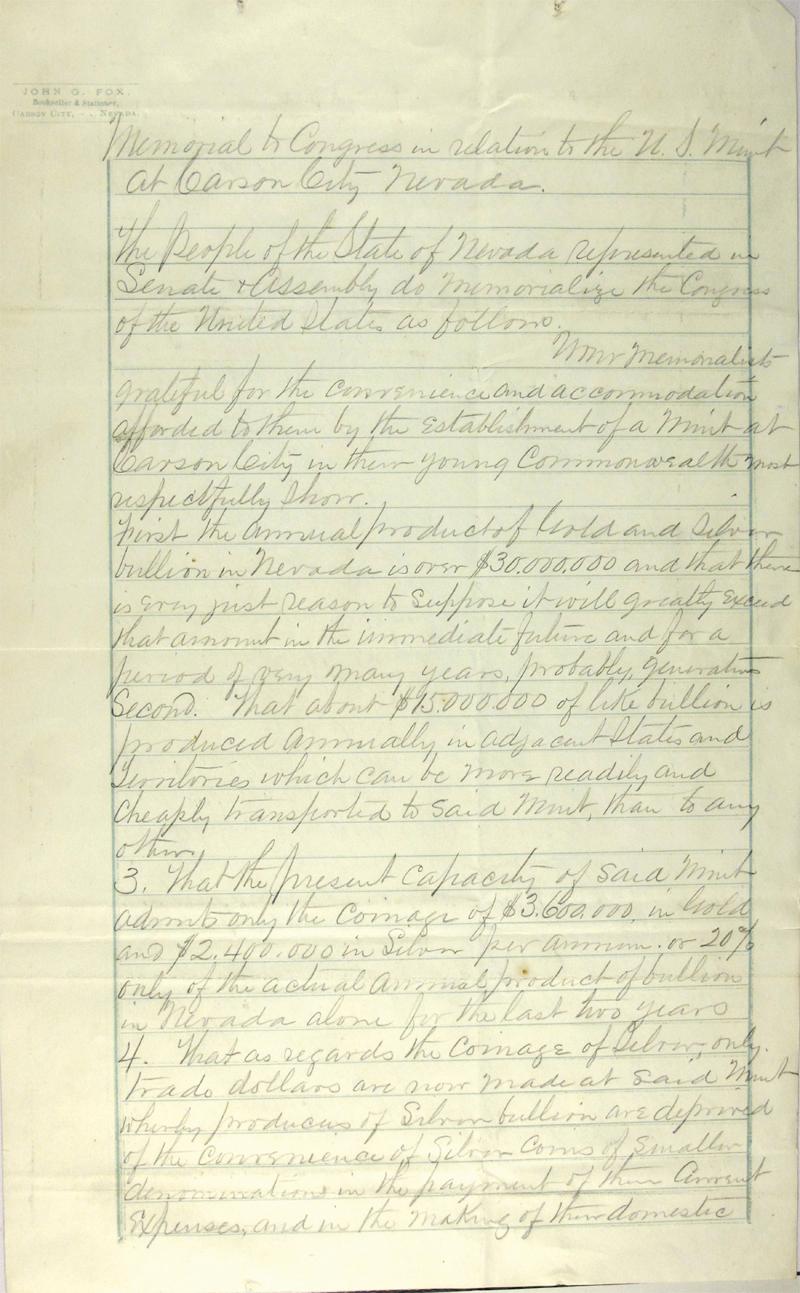 JOHN G. FOX.
Bookseller & Stationer,
CARSON CITY, - - NEVADA.
Memorial to Congress in relation to the U. S. Mint
at Carson City Nevada.
The People of the State of Nevada represented in
Senate & Assembly do Memorialize the Congress
of the United States as follows.
Your Memorialists
grateful for the convenience and accommodation
afforded to them by the establishment of a Mint at
Carson City in their young Commonwealth most
respectfully show.
First the annual product of Gold and Silver
bullion in Nevada is over $30.000.000 and that there
is every just reason to suppose it will greatly exceed
that amount in the immediate future and for a
period of very many years, probably, generations
Second. That about $15.000.000 of like bullion is
produced annually in adjacent States and
Territories which can be more readily and
cheaply transported to said Mint, than to any
other.
3. That the present capacity of said Mint
admits only the coinage of $3.600.000, in Gold
and $2.400.000 in Silver per annum. or 20%
only of the actual annual product of bullion
in Nevada alone for the last two years
4. That as regards the coinage of Silver, only
trade dollars are now made at said Mint
whereby producers of Silver bullion are deprived
of the convenience of Silver Coins of smaller
denominations in the payment of their current
expenses, and in the making of their domestic